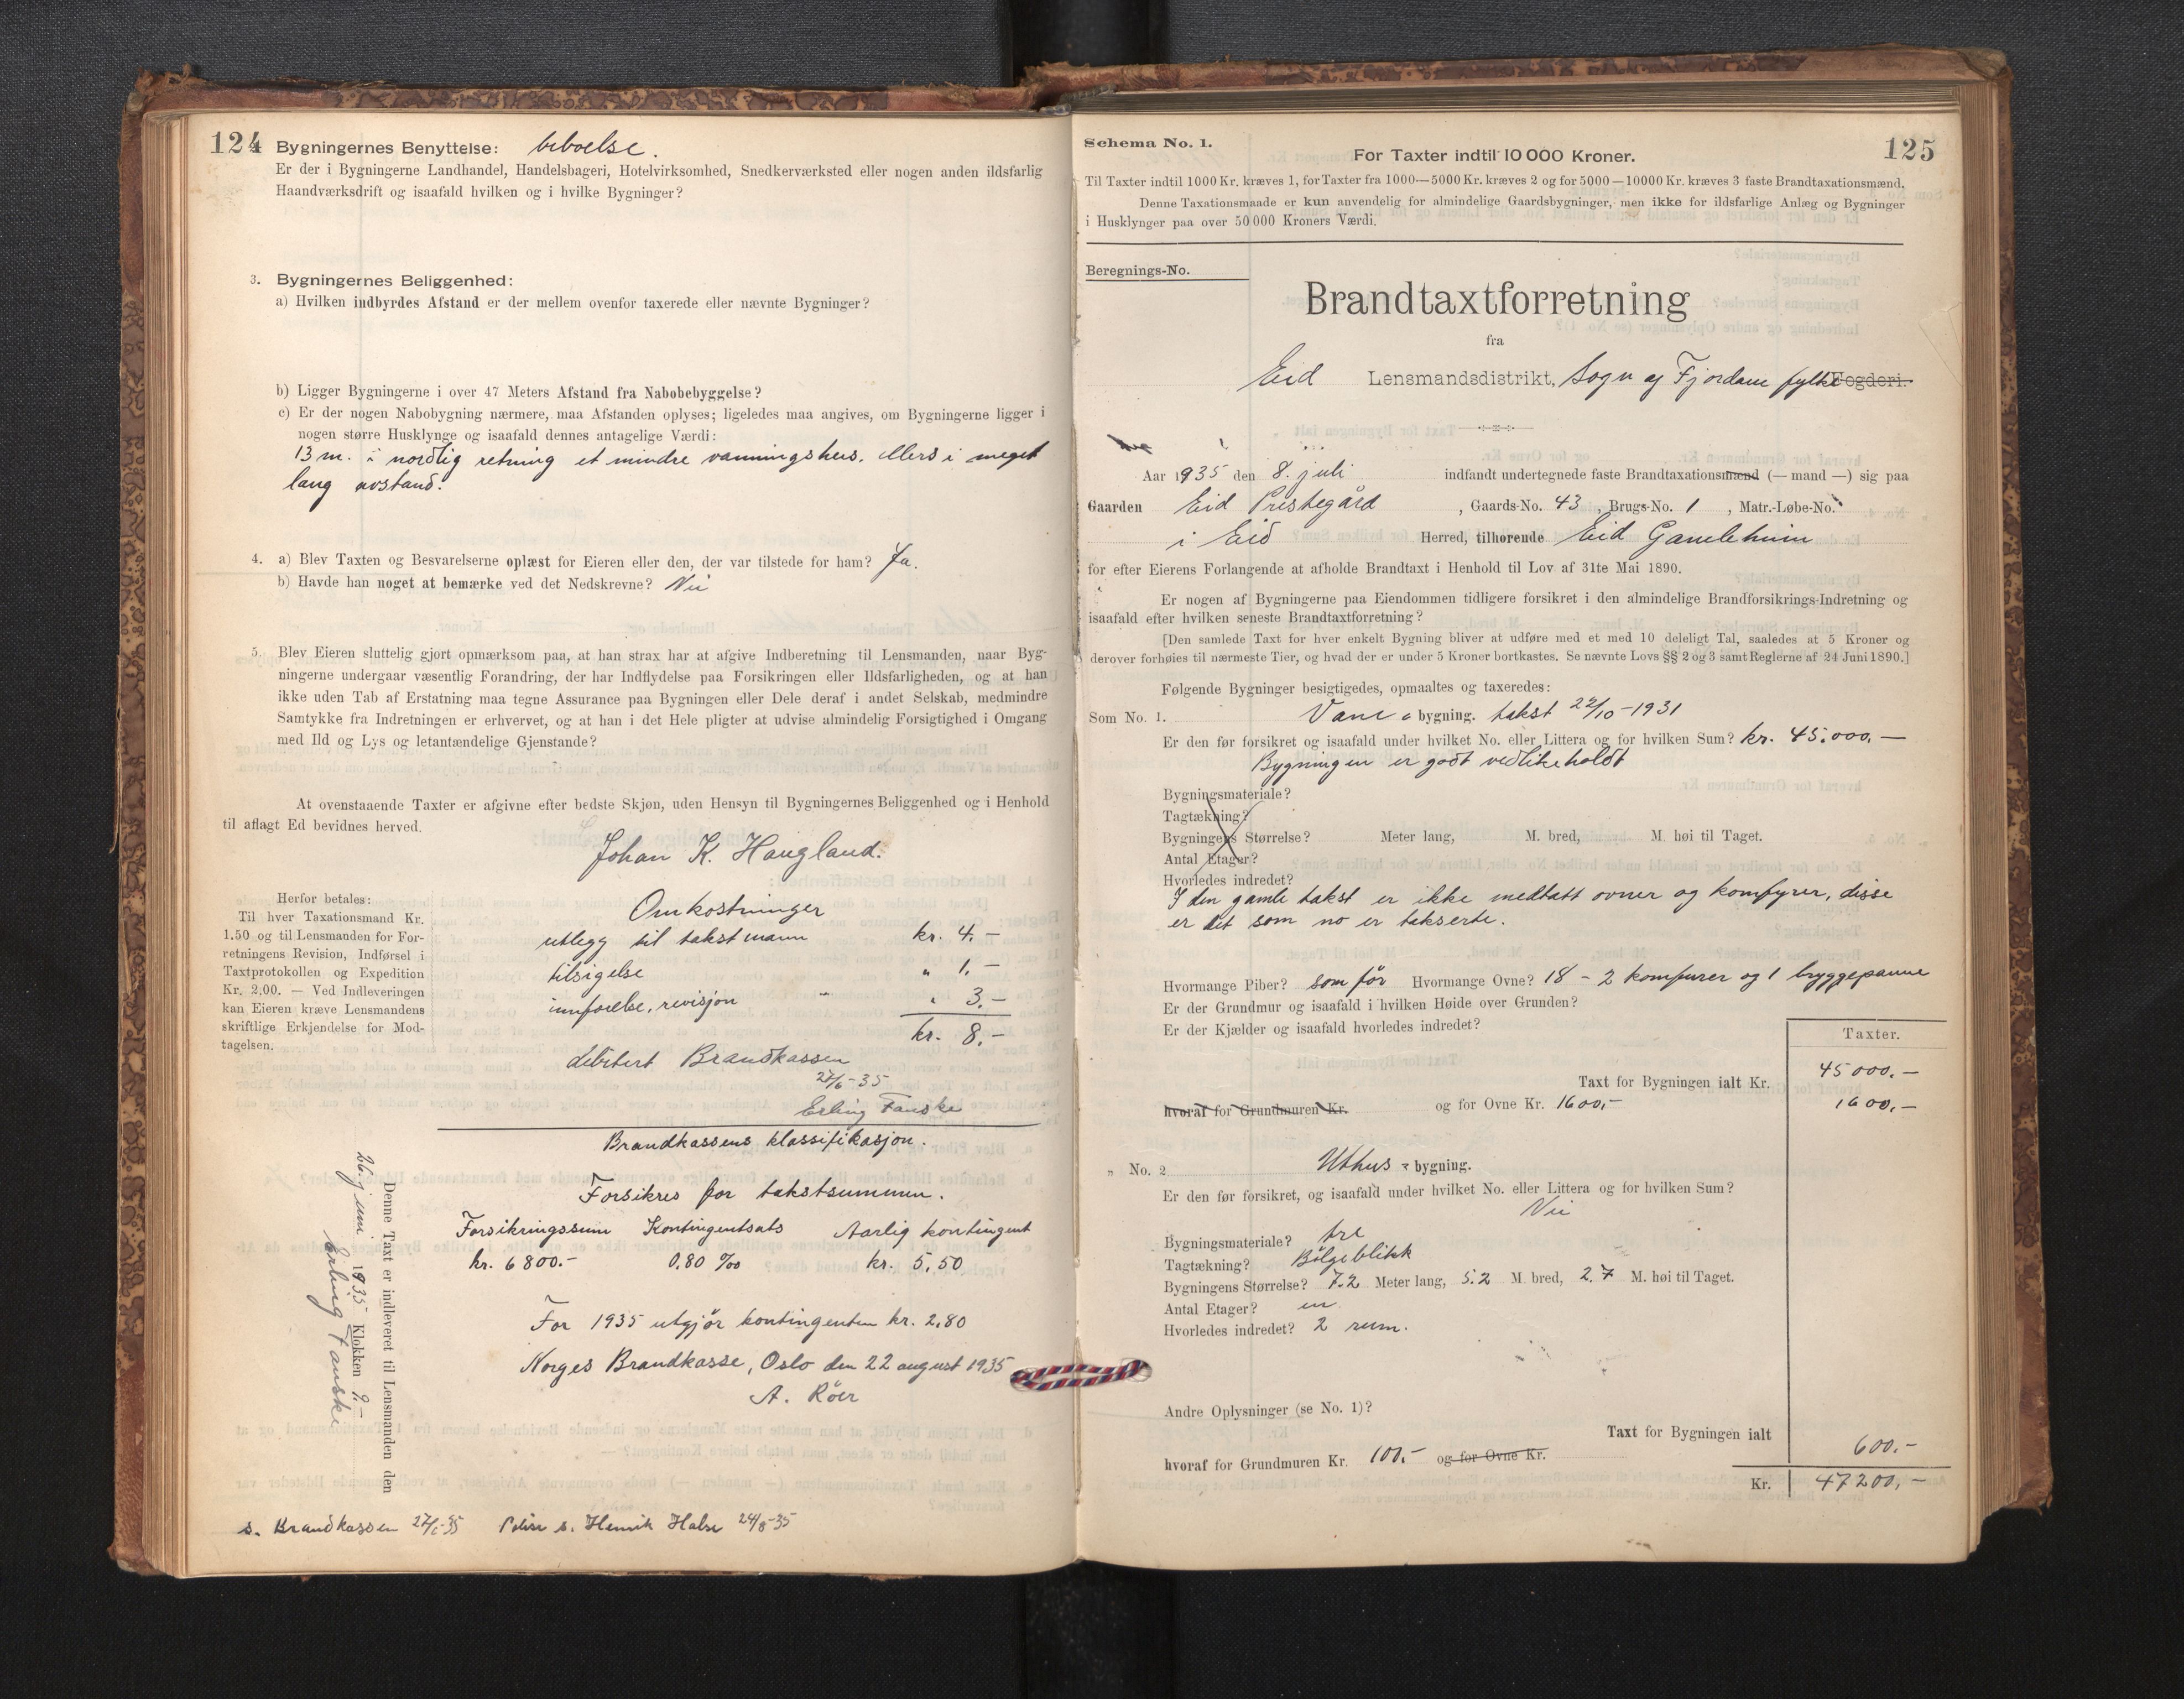 124
Bygningernes Benyttelse: beboelse.
Er der i Bygningerne Landhandel, Handelsbageri, Hotelvirksomhed, Snedkerværksted eller nogen anden ildsfarlig
Haandværksdrift og isaafald hvilken og i hvilke Bygninger?
3. Bygningernes Beliggenhed:
a) Hvilken indbyrdes Afstand er der mellem ovenfor taxerede eller nævnte Bygninger?
b) Ligger Bygningerne i over 47 Meters Afstand fra Nabobebyggelse?
c) Er der nogen Nabobygning nærmere, maa Afstanden oplyses; ligeledes maa angives, om Bygningerne ligger i
nogen større Husklynge og isaafald dennes antagelige Værdi:
13 m. i nordlig retning et mindre vaaningshus. Ellers i meget
lang avstand.
4. a) Blev Taxten og Besvarelserne oplæst for Eieren eller den, der var tilstede for ham? Ja.
b) Havde han noget at bemærke ved det Nedskrevne? Nei
5. Blev Eieren sluttelig gjort opmærksom paa, at han strax har at afgive Indberetning til Lensmanden, naar Byg-
ningerne undergaar væsentlig Forandring, der har Indflydelse paa Forsikringen eller Ildsfarligheden, og at han
ikke uden Tab af Erstatning maa tegne Assurance paa Bygningen eller Dele deraf i andet Selskab, medmindre
Samtykke fra Indretningen er erhvervet, og at han i det Hele pligter at udvise almindelig Forsigtighed i Omgang
med Ild og Lys og letantændelige Gjenstande?
At ovenstaaende Taxter er afgivne efter bedste Skjøn, uden Hensyn til Bygningernes Beliggenhed og i Henhold
til aflagt Ed bevidnes herved.
Johan K. Haugland.
Herfor betales:
Til hver Taxationsmand Kr.
1.50 og til Lensmanden for For-
retningens Revision, Indførsel i
Taxtprotokollen og Expedition
Kr. 2,00. — Ved Indleveringen
kan Eieren kræve Lensmandens
skriftlige Erkjendelse for Mod-
tagelsen.
Omkostninger
utlegg til takstmann kr. 4.-
tilsigelse " 1.-
innførelse, revisjon " " 3.-
kr. 8.-
debitert Brandkassen
27/6-35
Erling Fauske
Brandkassens klassifikasjon.
Forsikres for takstsummen.
Forsikringssum Kontingentsats Aarlig kontingent
kr. 6800.- 0,80 ‰ kr. 5,50
For 1935 utgjør kontingenten kr. 2,80
Norges Brandkasse, Oslo den 22 august 1935
A. Röer
Denne Taxt er indleveret til Lensmanden den
26. juni 1935 Klokken 9.-
Erling Fauske
s. Brandkassen 27/6-35 Polise s. Henrik Halse 24/8-35
Schema No. 1.
For Taxter indtil 10 000 Kroner.
125
Til Taxter indtil 1000 Kr. kræves 1, for Taxter fra 1000—5000 Kr. kræves 2 og for 5000—10000 Kr. kræves 3 faste Brandtaxationsmænd.
Denne Taxationsmaade er kun anvendelig for almindelige Gaardsbygninger, men ikke for ildsfarlige Anlæg og Bygninger
i Husklynger paa over 50 000 Kroners Værdi.
Beregnings-No.
Brandtaxtforretning
fra
Eid Lensmandsdistrikt, Sogn og Fjordane fylke Fogderi.
Aar 1935 den 8. juli indfandt undertegnede faste Brandtaxationsmænd (— mand —) sig paa
Gaarden Eid Prestegård, Gaards-No. 43, Brugs-No. 1, Matr.-Løbe-No.
i Eid Herred, tilhørende Eid Gamleheim
for efter Eierens Forlangende at afholde Brandtaxt i Henhold til Lov af 31te Mai 1890.
Er nogen af Bygningerne paa Eiendommen tidligere forsikret i den almindelige Brandforsikrings-Indretning og
isaafald efter hvilken seneste Brandtaxtforretning?
[Den samlede Taxt for hver enkelt Bygning bliver at udføre med et med 10 deleligt Tal, saaledes at 5 Kroner og
derover forhøies til nærmeste Tier, og hvad der er under 5 Kroner bortkastes. Se nævnte Lovs §§ 2 og 3 samt Reglerne af 24 Juni 1890.]
Følgende Bygninger besigtigedes, opmaaltes og taxeredes:
Som No. 1. Vane bygning. takst 22/10-1931
Er den før forsikret og isaafald under hvilket No. eller Littera og for hvilken Sum? kr. 45.000.—
Bygningen er godt vedlikeholdt
Bygningsmateriale?
Tagtækning?
Bygningens Størrelse? Meter lang, M. bred, M. høi til Taget.
Antal Etager?
Hvorledes indredet?
I den gamle takst er ikke medtatt ovner og komfyrer, disse
er det som no er takserte.
Hvormange Piber? som før Hvormange Ovne? 18 - 2 komfurer og 1 bryggepanne
Er der Grundmur og isaafald i hvilken Høide over Grunden?
Er der Kjælder og isaafald hvorledes indredet?
Taxter.
Taxt for Bygningen ialt Kr. 45000.—
hvoraf for Grundmuren Kr. og for Ovne Kr. 1600.- 1600.—
" No. 2 Uthus bygning.
Er den før forsikret, og isaafald under hvilket No. eller Littera og for hvilken Sum?
Nei
Bygningsmateriale? tre
Tagtækning? Bølgeblikk
Bygningens Størrelse? 7.2 Meter lang, 5.2 M. bred, 2.7 M. høi til Taget.
Antal Etager? en
Hvorledes indredet? 2 rum.
Andre Oplysninger (se No. 1)?
Taxt for Bygningen ialt 600.-
hvoraf for Grundmuren Kr. 100.- og for Ovne Kr.
Kr. 47200,-